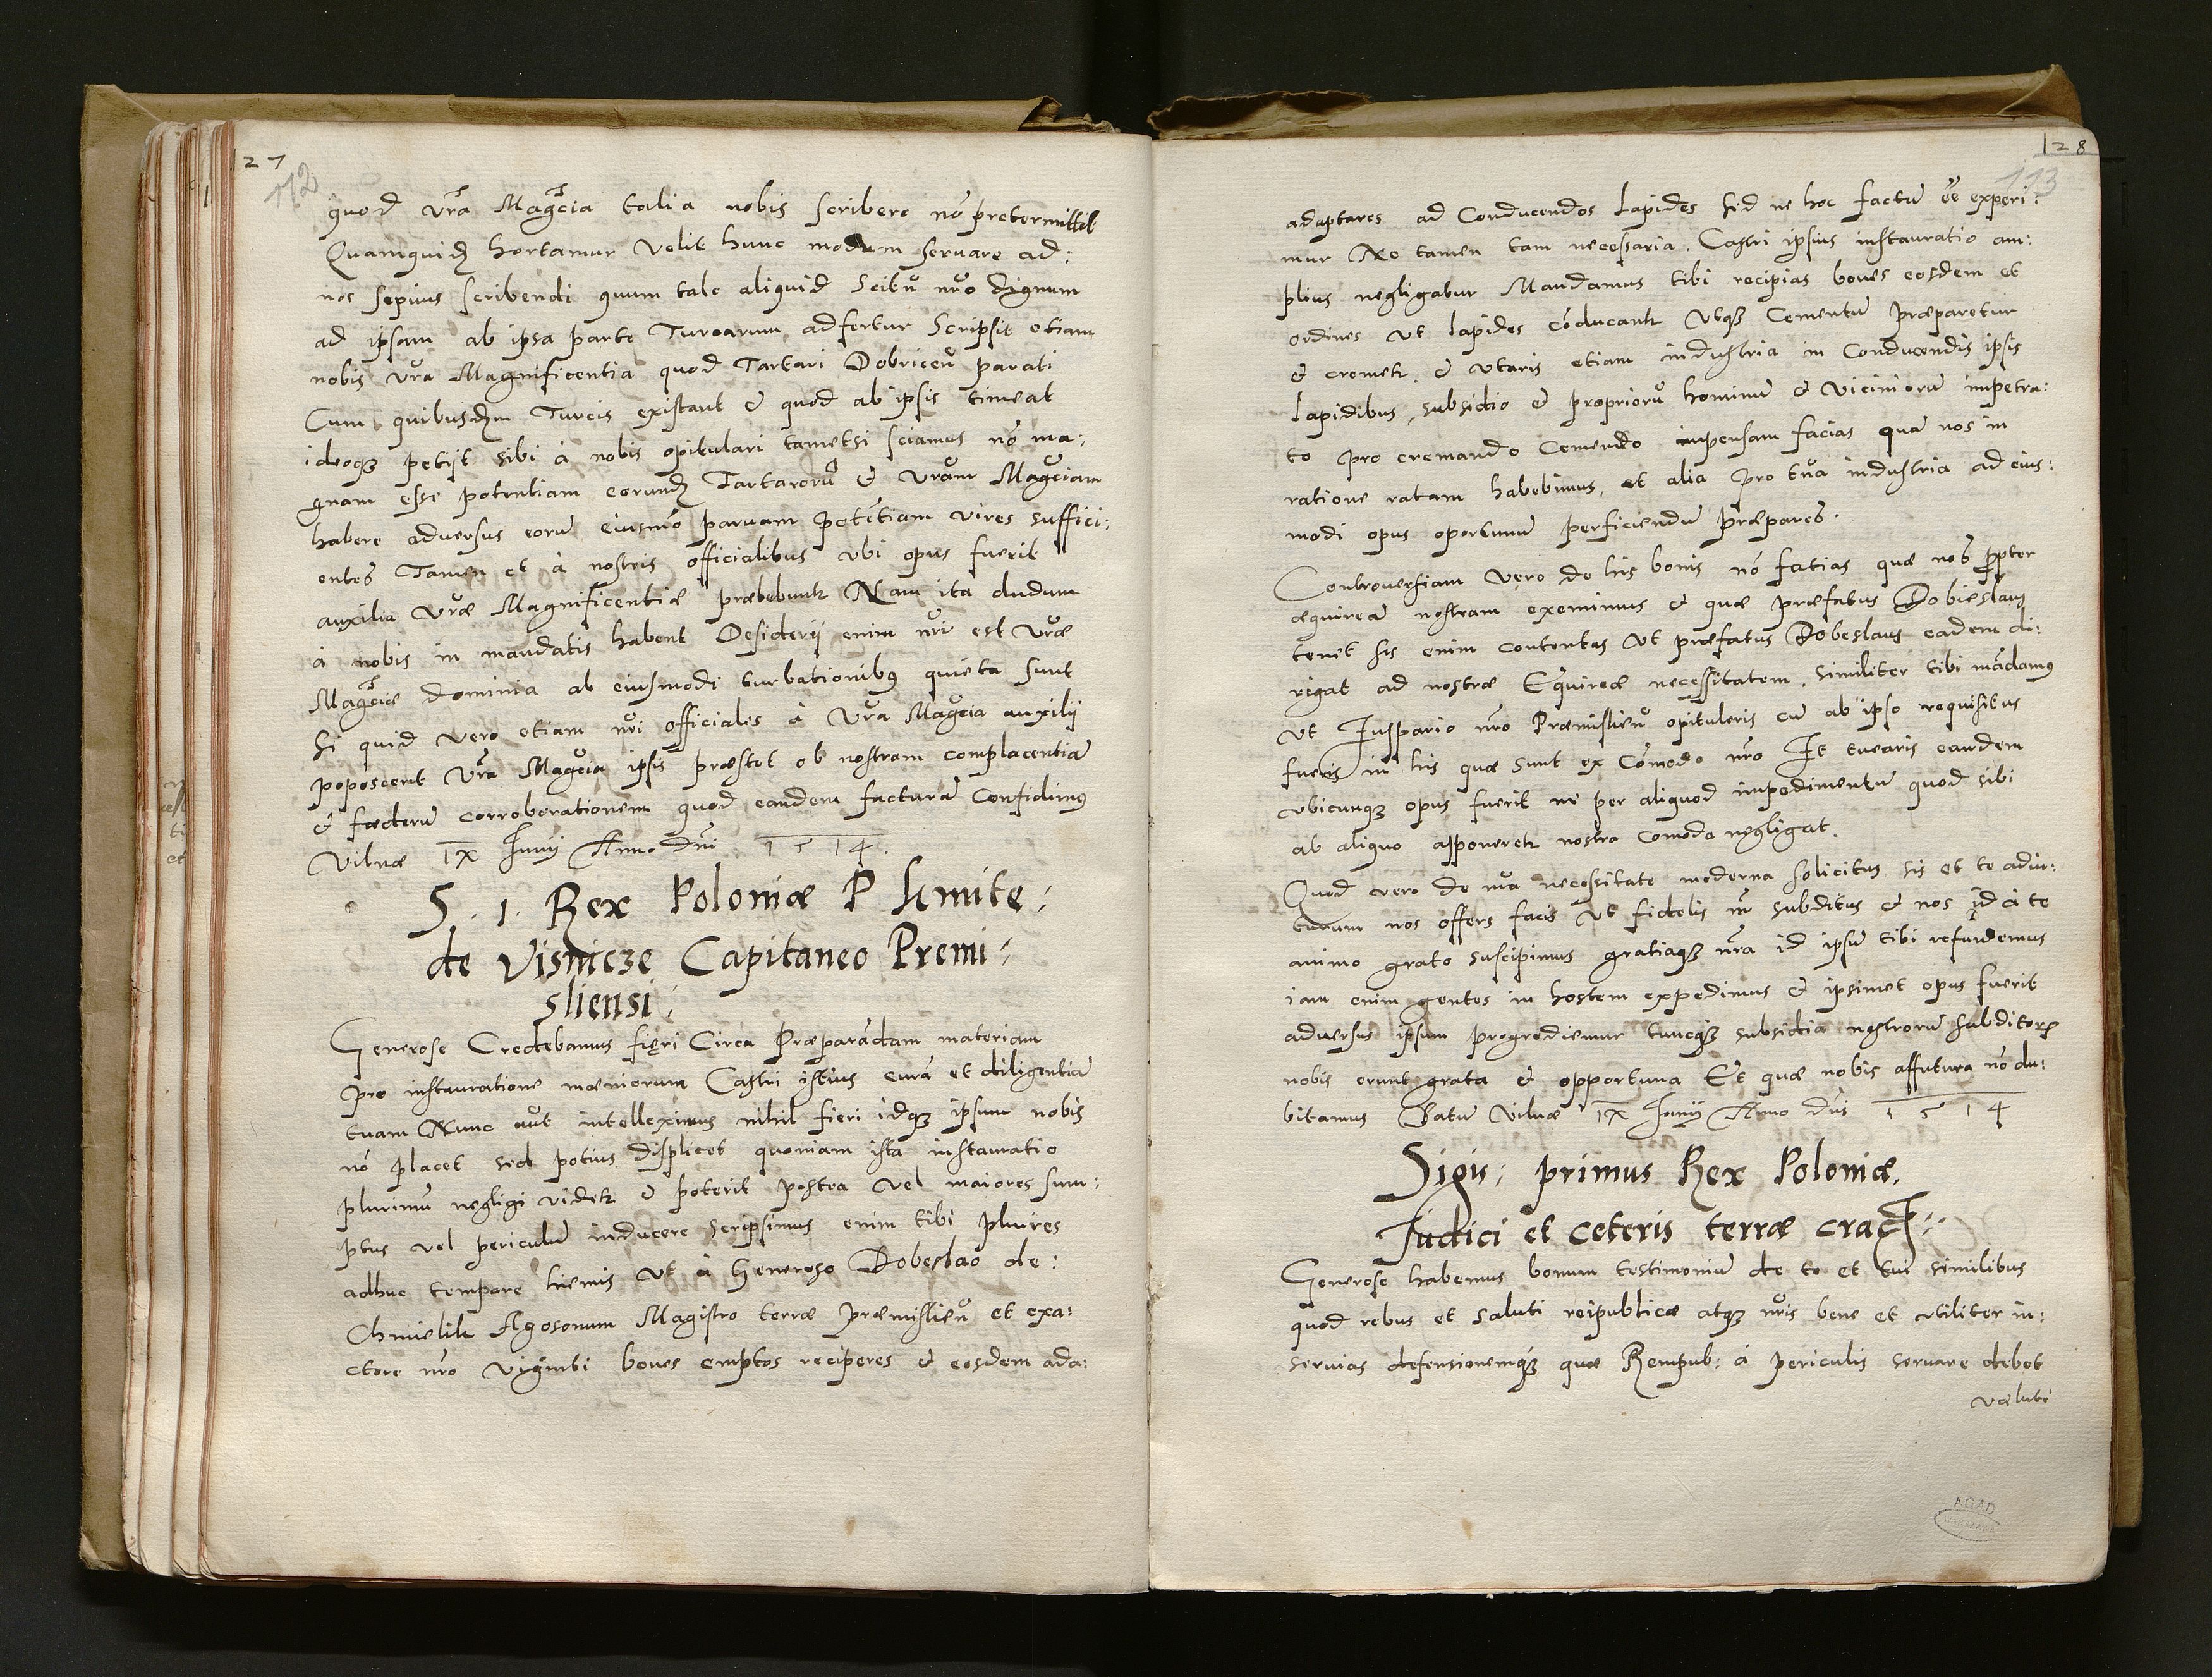 127
112
quod vr̃a Mag̃cia talia nobis scribere nõ pretermittit
Quamquidȝ hortamur velit hunc modum servare ad:
nos sepius scribendi quum tale aliquid scitũ nr̃o dignum
ad ipsam ab ipsa parte Turcarum adfertur Scripsit etiam
nobis vr̃a Magnificentia quod Tartari Dobriceñ parati
Cum quibusdȝm Turcis existant & quod ab ipsis timeat
ideoqȝ petijt sibi à nobis opitulari tametsi sciamus nõ ma:
gnam esse potentiam eorundȝ Tartarorũ & vr̃am Mag̃ciam
habere adversus eorũ eiusmõ parvam potẽtiam vires suffici:
entes Tamen et à nostris officialibus vbi opus fuerit
auxilia vr̃æ Magnificentiæ præbebuntr Nam ita dudum
à nobis in mandatis habent Desiderij enim nr̃i est vr̃æ
Mag̃ciæ dominia ab eiusmodi turbationibus quieta sunt
Si quid vero etiam nr̃i officiales à vr̃a Mag̃cia auxilij
poposcerit vr̃a Mag̃cia ipsis præstet ob nostram complacentiã
& fœderũ corroborationem quod eandem facturã confidimus
Vilnæ IX Junij Anno Dñi 1514.
S. 1. Rex Poloniæ P Kmite:
de Visnicze Capitaneo Premi:
sliensi:
Generose Credebamus fieri Circa Præparãdam materiam
pro instauratione mœniorum Castri istius curã et diligentiã
tuam Nunc aũt intelleximus nihil fieri idqȝ ipsum nobis
nõ placet sed potius displicet quoniam ista instauratio
plurimũ negligi videtr & poterit postea vel maiores sum:
ptus vel periculũ inducere scripsimus enim tibi plures
adhuc tempore hiemis vt à Generoso Dobeslao de:
Chmielik Agosonum Magistro terræ Præmislieñ et exa:
ctore nr̃o viginti boves emptos reciperes & eosdem ada:
128
113
adaptares ad Conducendos Lapides Sed ne hoc factũ ẽe experi:
mur Ne tamen tam necessaria Castri ipsius instauratio am:
plius negligatur Mandamus tibi recipias boves eosdem et
ordines vt lapides cõducantr vtqȝ Cementũ præparetur
& cremetr & vtaris etiam industria in conducendis ipsis
Lapidibus, subsidio & propriorũ hominũ & viciniorũ impetra:
to pro cremando Cemento impensam facias quã nos in
ratione ratam habebimus, et alia pro tũa industria ad eius:
modi opus oportunũ perficiendũ præpares.
Controversiam vero de his bonis nõ fatias quæ nob propter
æquireã nostram exemimus & quæ præfatus Dobieslaus
tenet sis enim contentus vt præfatus Dobeslaus eadem di:
rigat ad nostræ Equireæ necessitatem. Similiter tibi mãdamus
vt Juppario nr̃o Præmislieñ opituleris cũ ab ipso requisitus
fueris in his quæ sunt ex Cõmodo nr̃o Et tuearis eandem
vbicunqȝ opus fuerit ne per aliquod impedimentũ quod sibi
ab aliquo apponeretr nostra comoda negligat.
Quod vero de nr̃a necessitate moderna solicitus sis et te adiu:
turum nos offers facis vt fidelis nr̃ subditus & nos id à te
animo grato suscipimus gratiaqȝ nr̃a id ipsũ tibi refundemus
iam enim gentes in hostem expedimus & ipsimet opus fuerit
adversus ipsum progrediemur tuncqȝ subsidia nostrorũ subditorꝝ
nobis erunt grata & opportuna Et quæ nobis affutura nõ du:
bitamus Datũ Vilnæ IX Junij Anno Dñi 1514
Sigis: primus Rex Poloniæ.
Judici et ceteris terræ Crac̃:
Generose habemus bonum testimoniũ de te et tui similibus
quod rebus et saluti reipublicæ atqȝ nr̃is bene et vtiliter in:
servias defensionemqȝ quæ Rempub: à periculis servare debet
veluti
AGAD